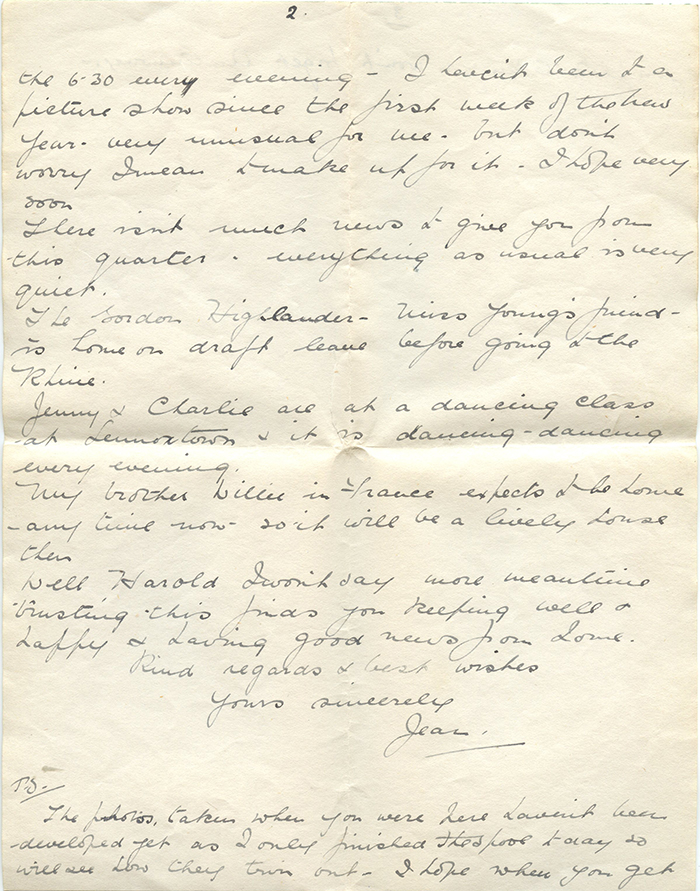 2.
the 6-30 every evening - I haven't been to a
picture show since the first week of the new
year - very unusual for me - but don't
worry I mean to make up for it - I hope very
soon
There isn't much news to give you from
this quarter - everything as usual is very
quiet.
The Gordon Highlander - Miss Young's friend -
is home on draft leave before going to the
Rhine.
Jenny & Charlie are at a dancing class
at Lennoxtown & it is dancing - dancing
every evening.
My brother Willie in France expects to be home
any time now - so it will be a lively house
then
Well Harold I won't say more meantime
trusting this finds you keeping well &
happy & having good news from home.
Kind regards & best wishes
Yours sincerely
Jean.
P.S.
The photos, taken when you were here haven't been
developed yet as I only finished the spool today so
will see how they turn out - I hope when you get